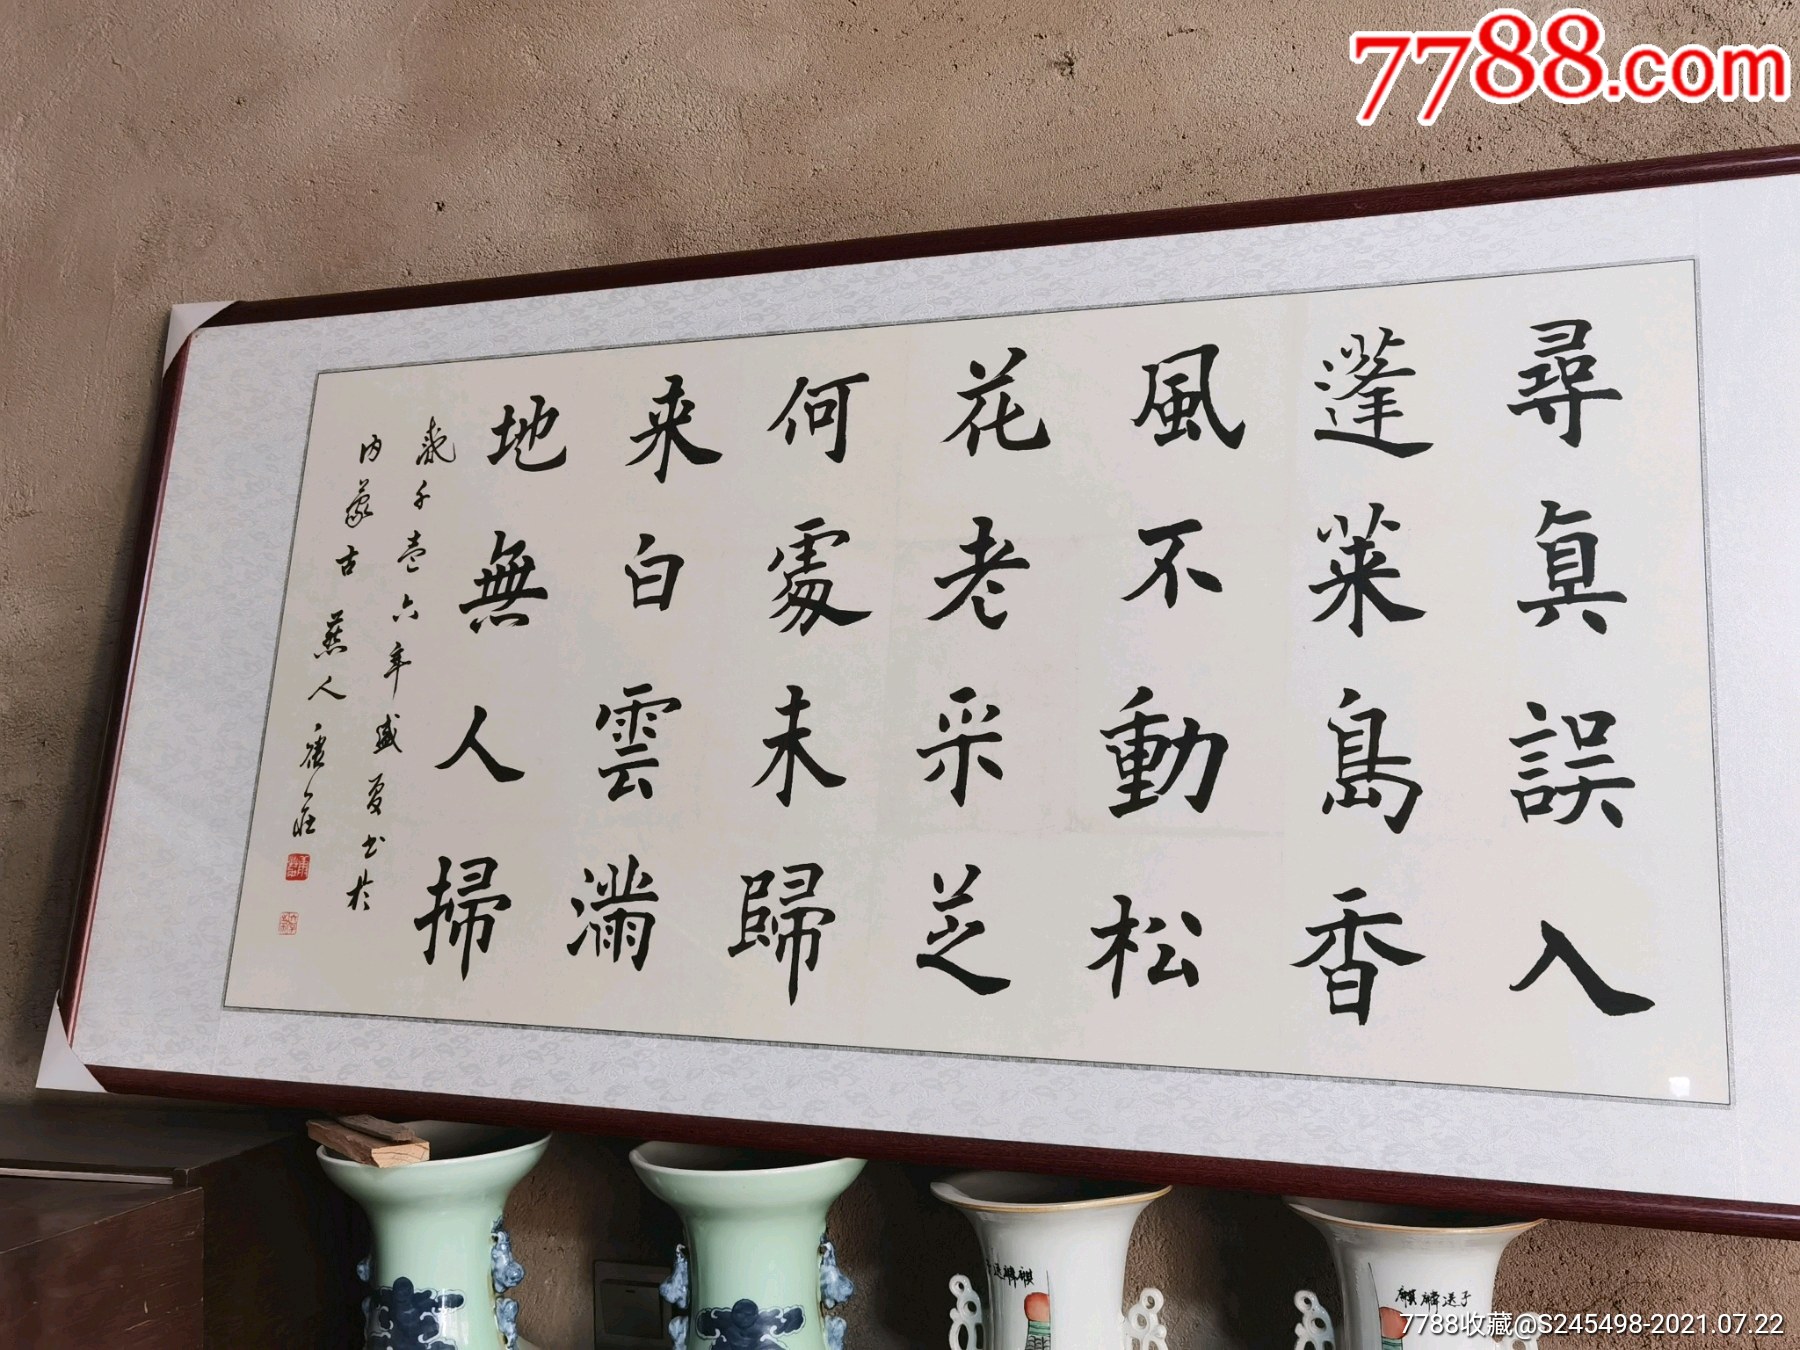 7788.com
尋真誤入
蓬萊島香
風不動松
花老采芝
何處未歸
来白雲滿
地無人掃
歲千壹六年盛夏书於
内蒙古燕人
麒麟送子
7788收藏@S245498-2021.07.22